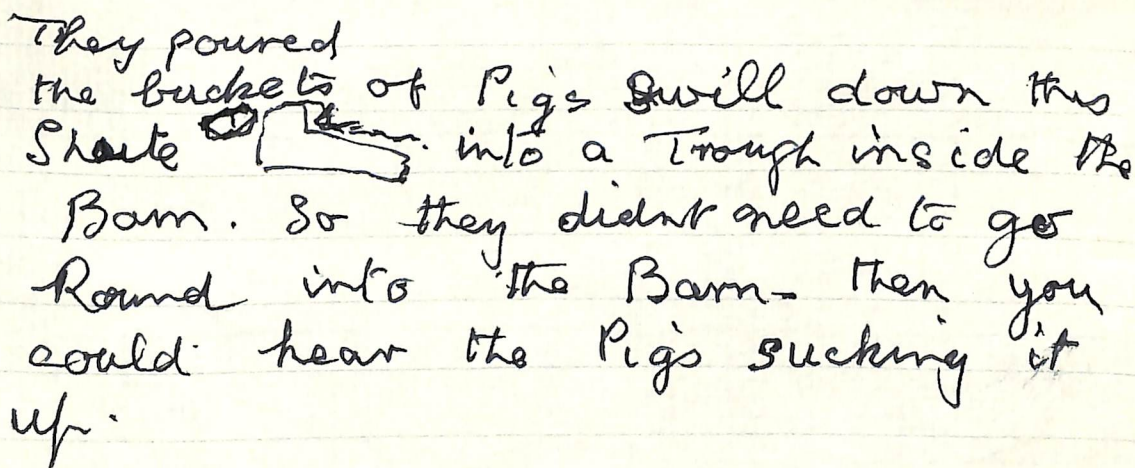 They poured
the buckets of Pigs Swill down this
Shoute into a Trough inside the
Barn. So they didnt need to go
Round into the Barn - then you
could hear the Pigs sucking it
up.